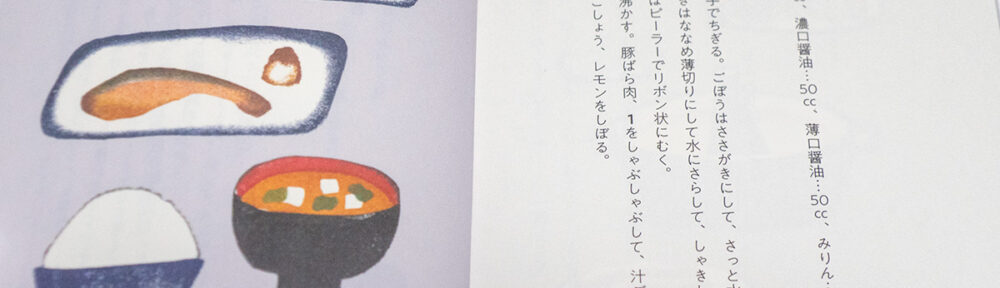 濃口醤油…50cc、薄口醤油…50cc、みりん
手でちぎる。ごぼうはささがきにして、さっと水
きはななめ薄切りにして水にさらして、しゃき
はピーラーでリボン状にむく。
沸かす。豚ばら肉、1をしゃぶしゃぶして、汁
こしょう、レモンをしぼる。